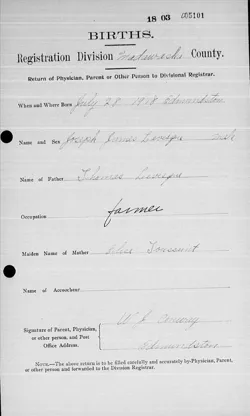 18 03 005101
BIRTHS.
Registration Division Madawaska County.
Return of Physician, Parent or Other Person to Divisional Registrar.
When and Where Born July 28 1918 Edmundston
Name and Sex Joseph male
Name of Father Thomas
Occupation farmer
Maiden Name of Mother
Name of Accoucheur
W. J.
Signature of Parent, Physician,
or other person, and Post
Office Address. Edmundston
NOTE.—The above return is to be filled carefully and accurately by Physician, Parent,
or other person and forwarded to the Division Registrar.